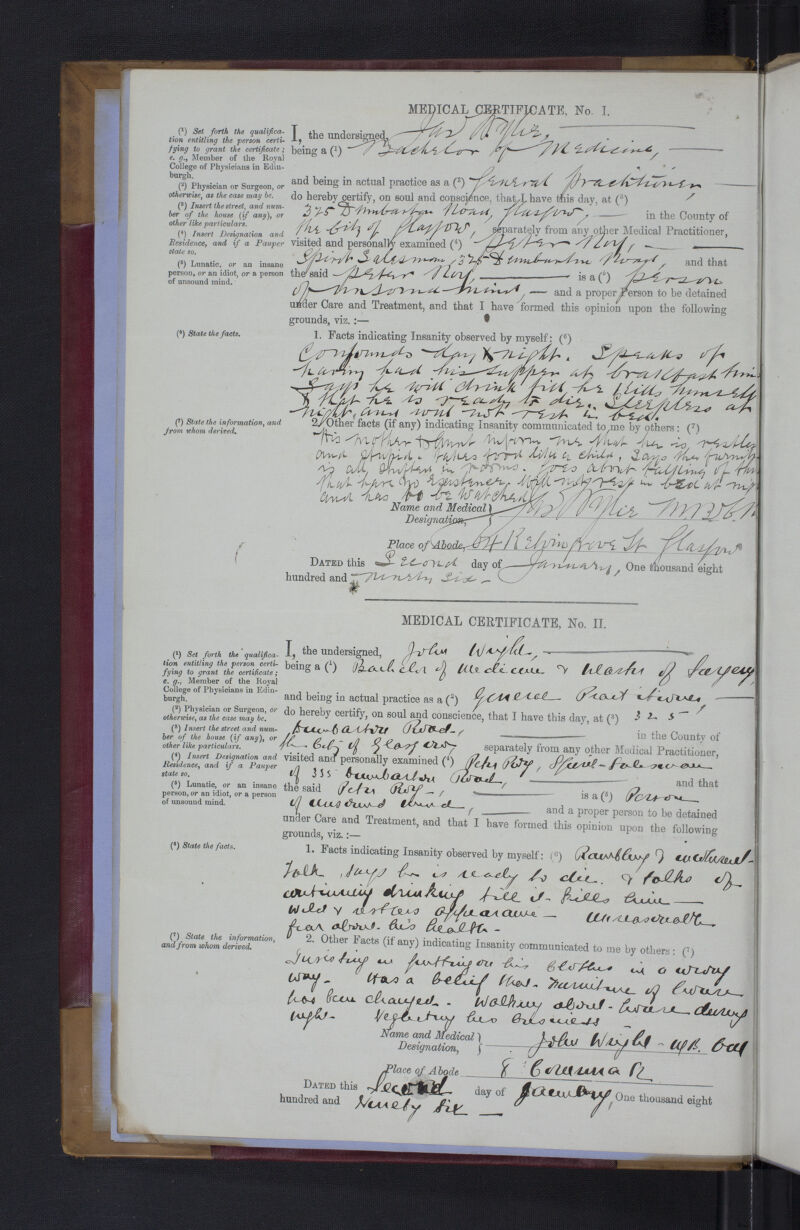 MEDICAL CERTIFICATE, No. I.
(1) Set forth the qualifica-
tion entitling the person certi-
fying to grant the certificate;
e. g., Member of the Royal
College of Physicians in Edin-
burgh.
(2) Physician or Surgeon, or
otherwise, as the case may be.
(3) Insert the street, and num-
ber of the house (if any), or
other like particulars.
(4) Insert Designation and
Residence, and if a Pauper
state so.
(5) Lunatic, or an insane
person, or an idiot, or a person
of unsound mind.
(6) State the facts.
(7) State the information, and
from whom derived.
I, the undersigned, Jas Wylie,
being a (1) Bachelor of Medicine,
and being in actual practice as a (2) General Practitioner
do hereby certify, on soul and conscience, that I have this day, at (3)
325 Dumbarton Road, Glasgow, in the County of
the City of Glasgow, separately from any other Medical Practitioner,
visited and personally examined (4) Peter Roy,
Spirit Salesman, 325 Dumbarton Road, and that
the said Peter Roy, is a (5) person
of unsound mind, and a proper Person to be detained
under Care and Treatment, and that I have formed this opinion upon the following
grounds, viz. :—
1. Facts indicating Insanity observed by myself: (6)
Confounds day & night. Speaks of
having had his supper at breakfast time
Says he will drink till he kills himself
& that he is ready to die. Sleepless at
night, and will not rest in bed.
2. Other facts (if any) indicating Insanity communicated to me by others: (7)
His mother & Aunt inform me that he is restless
and stupid. takes food like a child, Says the furniture
is all shifted in rooms. Goes about talking of
that have no Existence, Will not rest in bed at
and has to be watched
Name and Medical Designation, Jas Wylie M.B. C.M
Place of Abode, Kelvingrove St Glasgow
DATED this Second day of January, One thousand eight
hundred and ninety six
MEDICAL CERTIFICATE, No. II.
(1) Set forth the qualifica-
tion entitling the person certi-
fying to grant the certificate;
e. g., Member of the Royal
College of Physicians in Edin-
burgh.
(2) Physician or Surgeon, or
otherwise, as the case may be.
(3) Insert the street and num-
ber of the house (if any), or
other like particulars.
(4) Insert Designation and
Residence, and if a Pauper
state so.
(5) Lunatic, or an insane
person, or an idiot, or a person
of unsound mind.
(6) State the facts.
(7) State the information,
and from whom derived.
I, the undersigned, John Wright,
being a (1) Bachelor of Medicine & Master of Surgery
and being in actual practice as a (2) General Practitioner,
do hereby certify, on soul and conscience, that I have this day, at (3) 325
Dumbarton Road, in the County of
the City of Glasgow separately from any other Medical Practitioner,
visited and personally examined (4) Peter Roy, Spirit-Salesman
of 355 Dumbarton Road, and that
the said Peter Roy, is a (5) Person
of unsound mind, and a proper person to be detained
under Care and Treatment, and that I have formed this opinion upon the following
grounds, viz. :—
1. Facts indicating Insanity observed by myself: (6) Rambling & incoherent
talk, says he is ready to die. & talks of
continuing drinking till it kills him —
Wild & restless appearance — unreasonable
fear about his health -
2. Other Facts (if any) indicating Insanity communicated to me by others: (7)
Insisting in putting on his clothes in a wrong
way. Has a belief that furniture of house
has been changed. Walking about house during
night. Neglecting his business
Name and Medical Designation, John Wright - M.B. C.M
Place of Abode 8
DATED this Second day of January, One thousand eight
hundred and Ninety Six